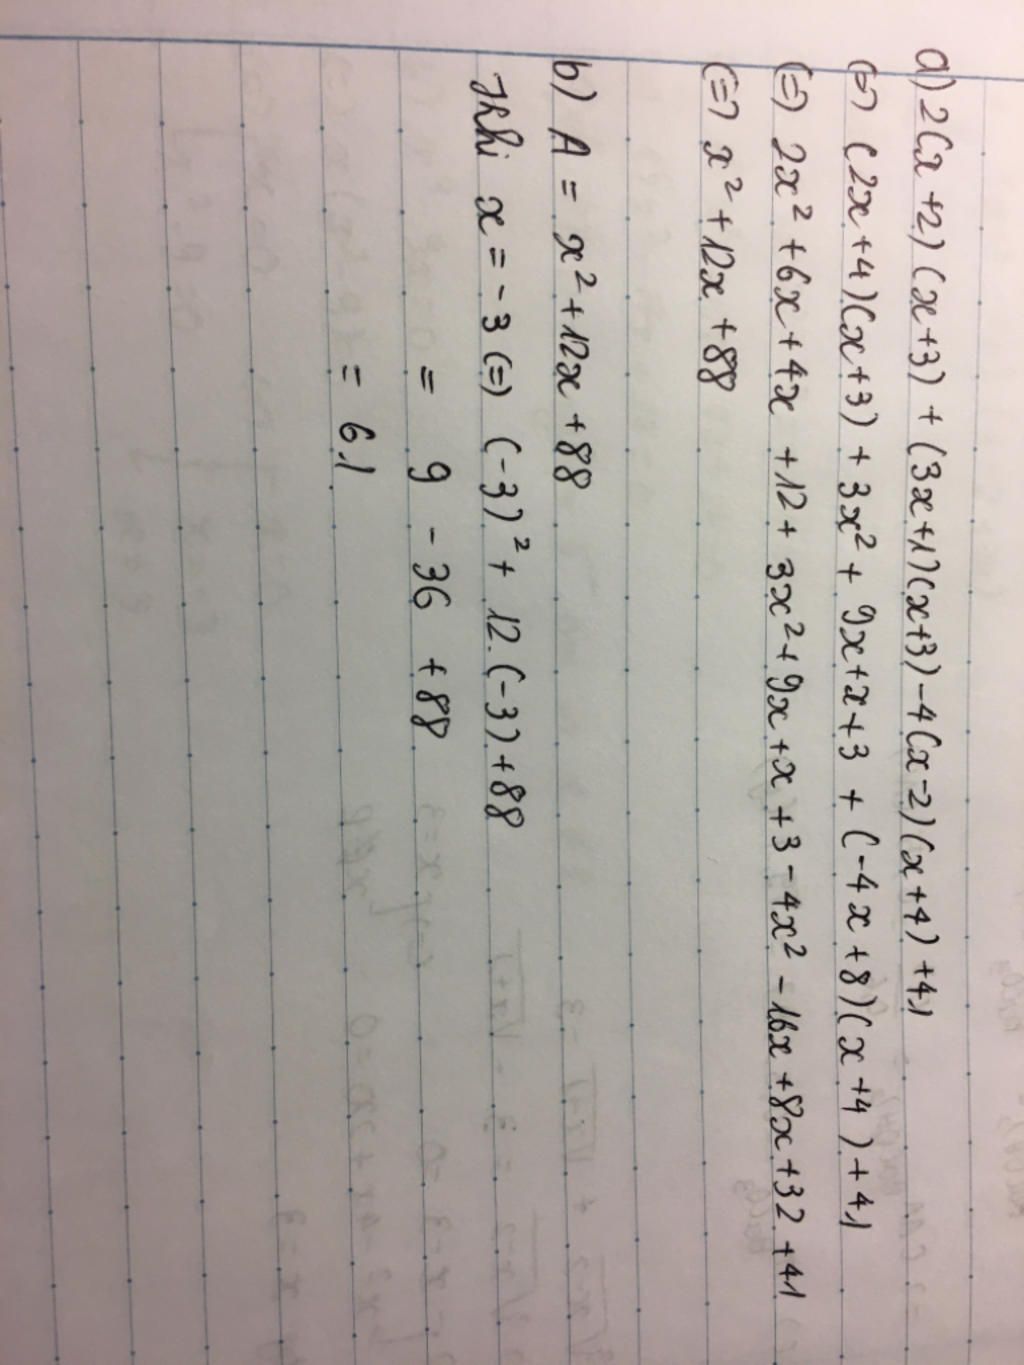 a) 2(x+2)(x+3) + (3x+1)(x+3) - 4(x-2)(x+4) + 41
(=) (2x+4)(x+3) + 3x² + 9x + x + 3 + (-4x+8)(x+4) + 41
(=) 2x² + 6x + 4x + 12 + 3x² + 9x + x + 3 - 4x² - 16x + 8x + 32 + 41
(=) x² + 12x + 88
b) A = x² + 12x + 88
Khi x = -3 (=) (-3)² + 12.(-3) + 88
= 9 - 36 + 88
= 61